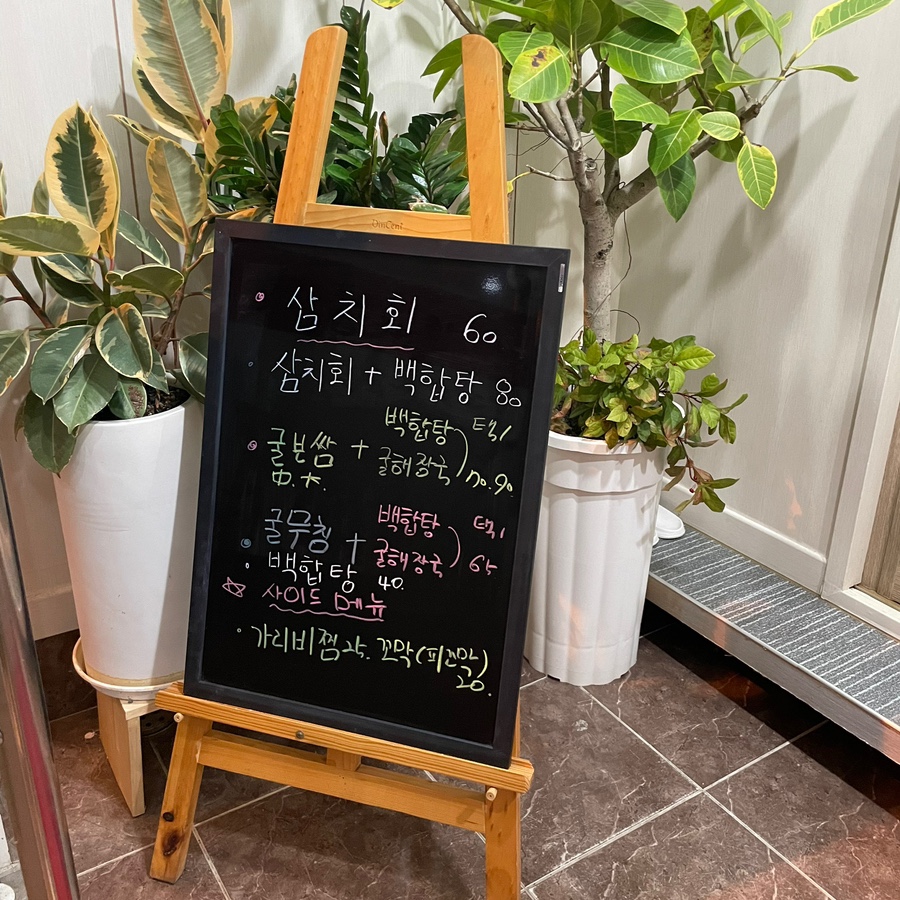 DinCent
삼치회 60
삼치회 + 백합탕 80
굴보쌈 + 백합탕 택1
中.大. 굴해장국 70.90.
굴무침 + 백합탕 택1
굴해장국 65
백합탕 40.
사이드 메뉴
가리비찜 25. 꼬막(피꼬막)
20.